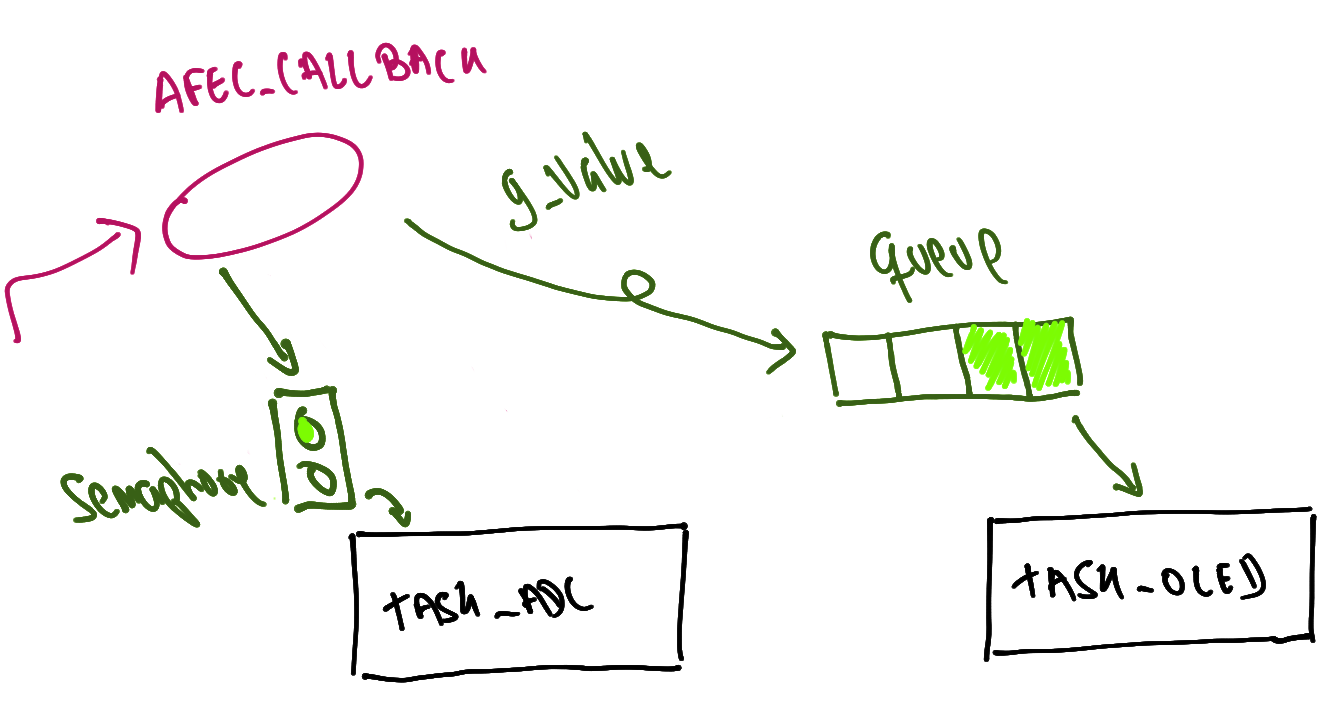 AFEC_CALLBACK
g_value
queue
Semaphore
TASK_ADC
TASK_OLED